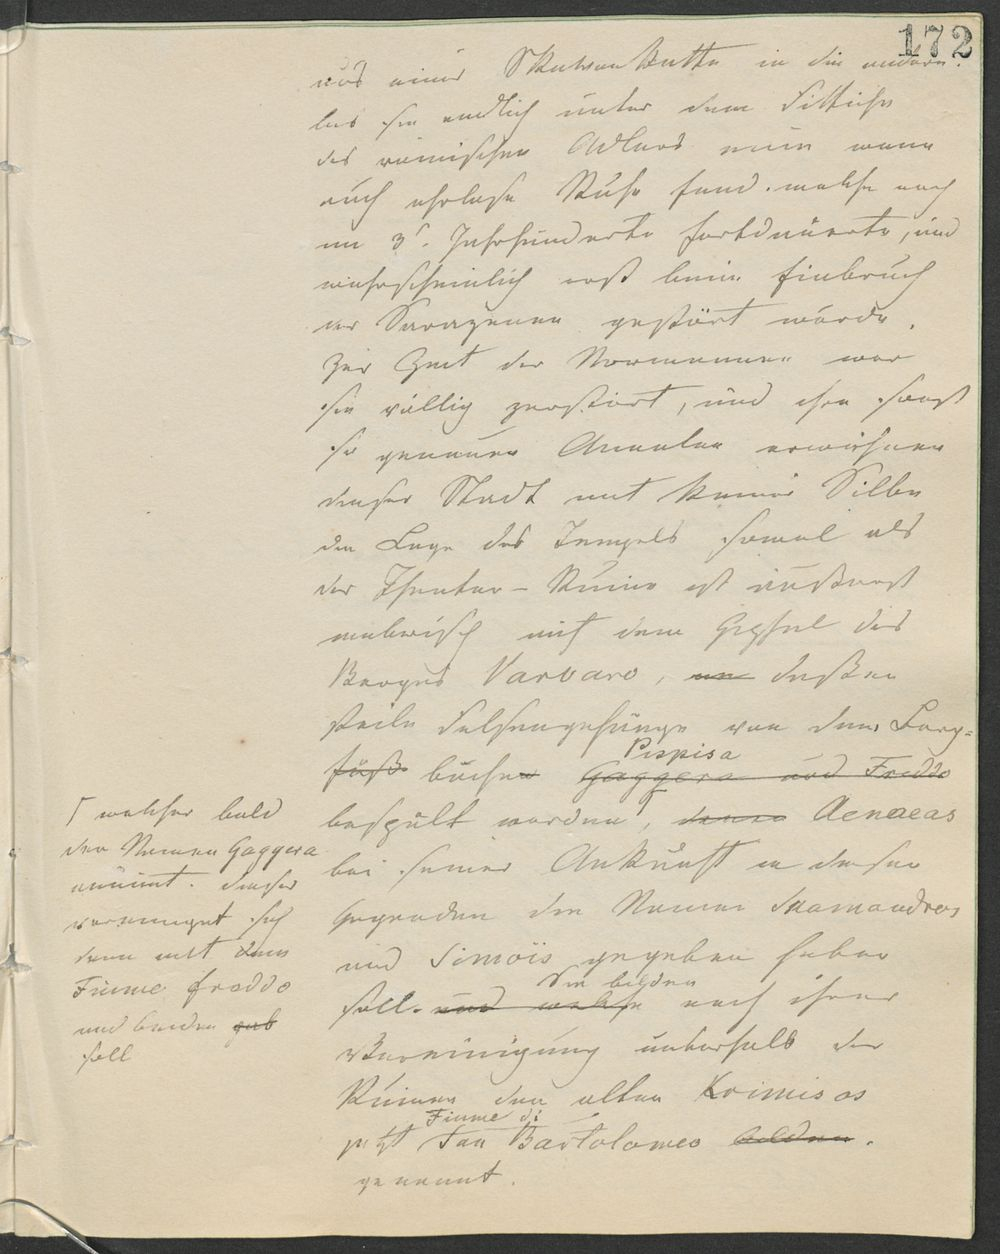 172
aus einer Sklavenkette in die andere.
bis sie endlich unter dem Fittiche
des römischen Adlers eine wenn
auch ehrlose Ruhe fand. welche noch
im 3t. Jahrhunderte fortdauerte, und
wahrscheinlich erst beim Einbruch
der Sarazenen gestört wurde.
Zur Zeit der Normannen war
sie völlig zerstört, und ihre sonst
so genauen Annalen erwähnen
dieser Stadt mit keiner Silbe
die Lage des Tempels sowol als
der Theater-Ruine ist äußerst
malerisch auf dem Gipfel des
Berges Varvaro, dessen
steile Felsengehänge von dem Berg-
Pispisa
fuß bache Gaggera und Freddo
bespült werden, denen Aenaeas
bei seiner Ankunft in diesen
Gegenden die Namen Skamandros
und Simoïs gegeben haben
Sie bilden
soll. und welche nach ihrer
Vereinigung unterhalb der
Ruinen den alten Krimisos
Fiume di
jetzt San Bartolomeo bilden.
genannt.
Γ welcher bald
den Namen Gaggera
annimt. dieser
vereinigt sich
dann mit dem
Fiume freddo
und beiden gab
soll